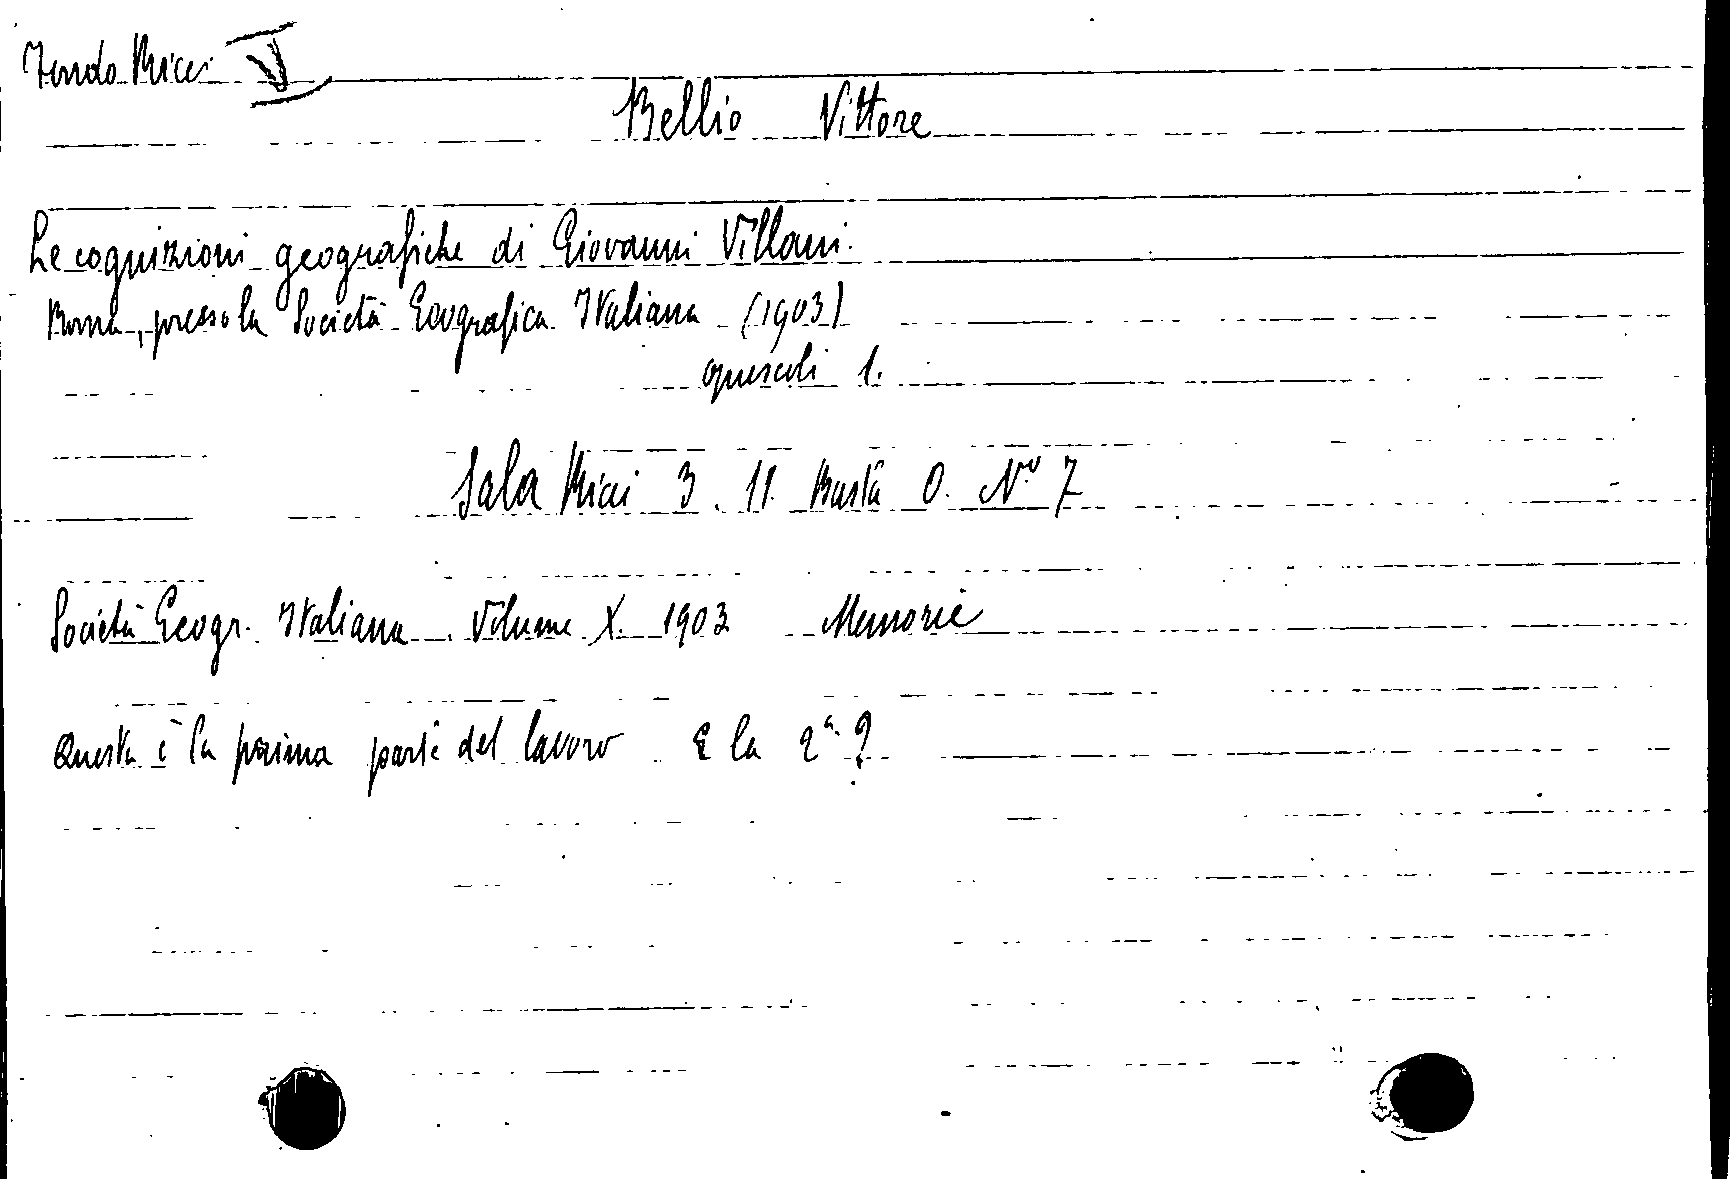 Fondo Ricci V
Bellio Vittore
Le cognizioni geografiche di Giovanni Villani.
Roma, presso la Società Geografica Italiana (1903)
opuscoli 1.
Sala Ricci 3. 11. Busta O. N.º 7
Società Geogr. Italiana. Volume X. 1903 Memorie
Questa è la prima parte del lavoro E la 2ª ?